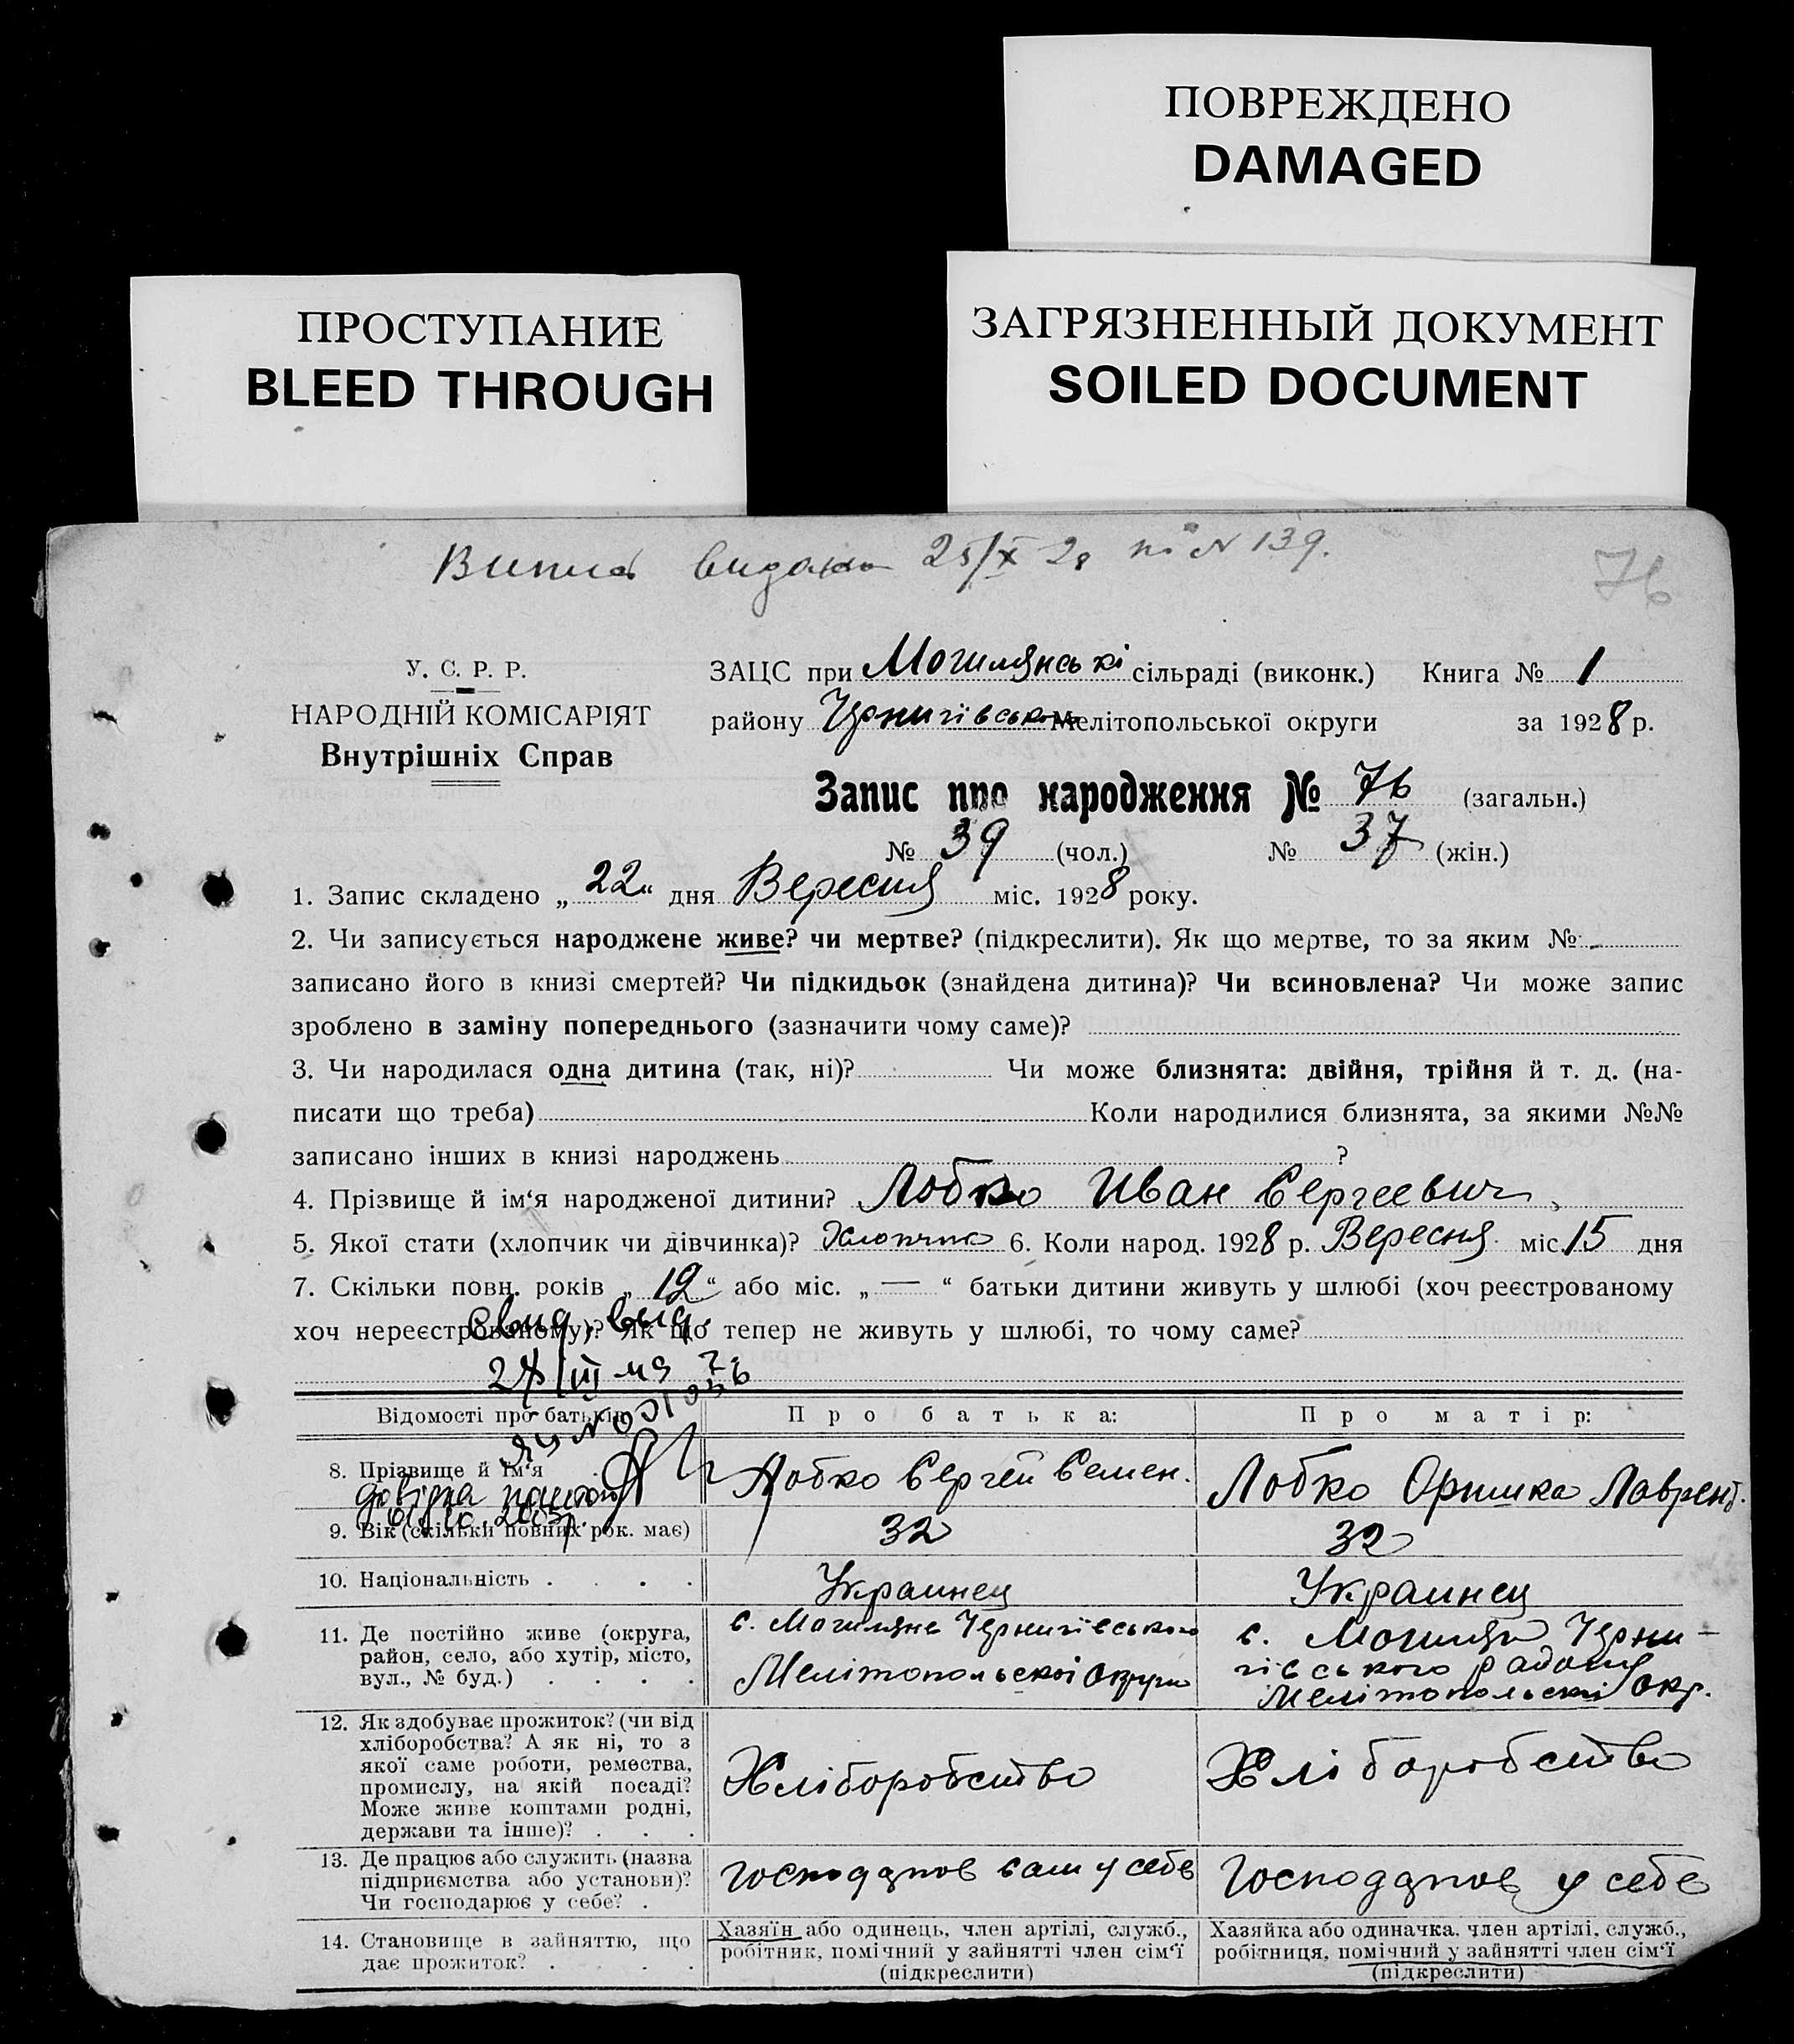 ПОВРЕЖДЕНО
DAMAGED
ПРОСТУПАНИЕ
BLEED THROUGH
ЗАГРЯЗНЕННЫЙ ДОКУМЕНТ
SOILED DOCUMENT
Випис видано 25/X 28 по N 139.
76
У. С. Р. Р.
НАРОДНІЙ КОМІСАРІЯТ
Внутрішніх Справ
ЗАЦС при Могилянські сільраді (виконк.) Книга № 1
району Чернигівсько Мелітопольської округи за 1928 р.
Запис про народження № 76 (загальн.)
№ 39 (чол.) № 37 (жін.)
1. Запис складено „22“ дня Вересня міс. 1928 року.
2. Чи записується народжене живе? чи мертве? (підкреслити). Як що мертве, то за яким №
записано його в книзі смертей? Чи підкидьок (знайдена дитина)? Чи всиновлена? Чи може запис
зроблено в заміну попереднього (зазначити чому саме)?
3. Чи народилася одна дитина (так, ні)? Чи може близнята: двійня, трійня й т. д. (на-
писати що треба) Коли народилися близнята, за якими №№
записано інших в книзі народжень ?
4. Прізвище й ім‘я народженої дитини? Лобко Иван Сергеевич
5. Якої стати (хлопчик чи дівчинка)? Хлопчик 6. Коли народ. 1928 р. Вересня міс. 15 дня
7. Скільки повн. років „12“ або міс. „—“ батьки дитини живуть у шлюбі (хоч реєстрованому
хоч нереєстрованому)? Як що тепер не живуть у шлюбі, то чому саме?
Свид. выд.
2X/III
Відомості про батьків Про батька: Про матір:
8. Прізвище й ім‘я Лобко Сергей Семен. Лобко Оришка Лаврент.
довідка
9. Вік (скільки повних рок. має) 32 32
10. Національність . . . . Украинец Украинец
11. Де постійно живе (округа,
район, село, або хутір, місто,
вул., № буд.) . . . .
с. Могиляне Чернигівського
Мелітопольскої Округи
с. Могиляни Черни-
гівського району
Мелітопольскої Окр.
12. Як здобуває прожиток? (чи від
хліборобства? А як ні, то з
якої саме роботи, ремества,
промислу, на якій посаді?
Може живе коштами родні,
держави та інше)? . . .
Хліборобство Хліборобство
13. Де працює або служить (назва
підприємства або установи)?
Чи господарює у себе? .
Господарює сам у себе Господарює у себе
14. Становище в зайняттю, що
дає прожиток? . . . .
Хазяїн або одинець, член артілі, служб.,
робітник, помічний у зайнятті член сім‘ї
(підкреслити)
Хазяйка або одиначка, член артілі, служб.,
робітниця, помічний у зайнятті член сім‘ї
(підкреслити)